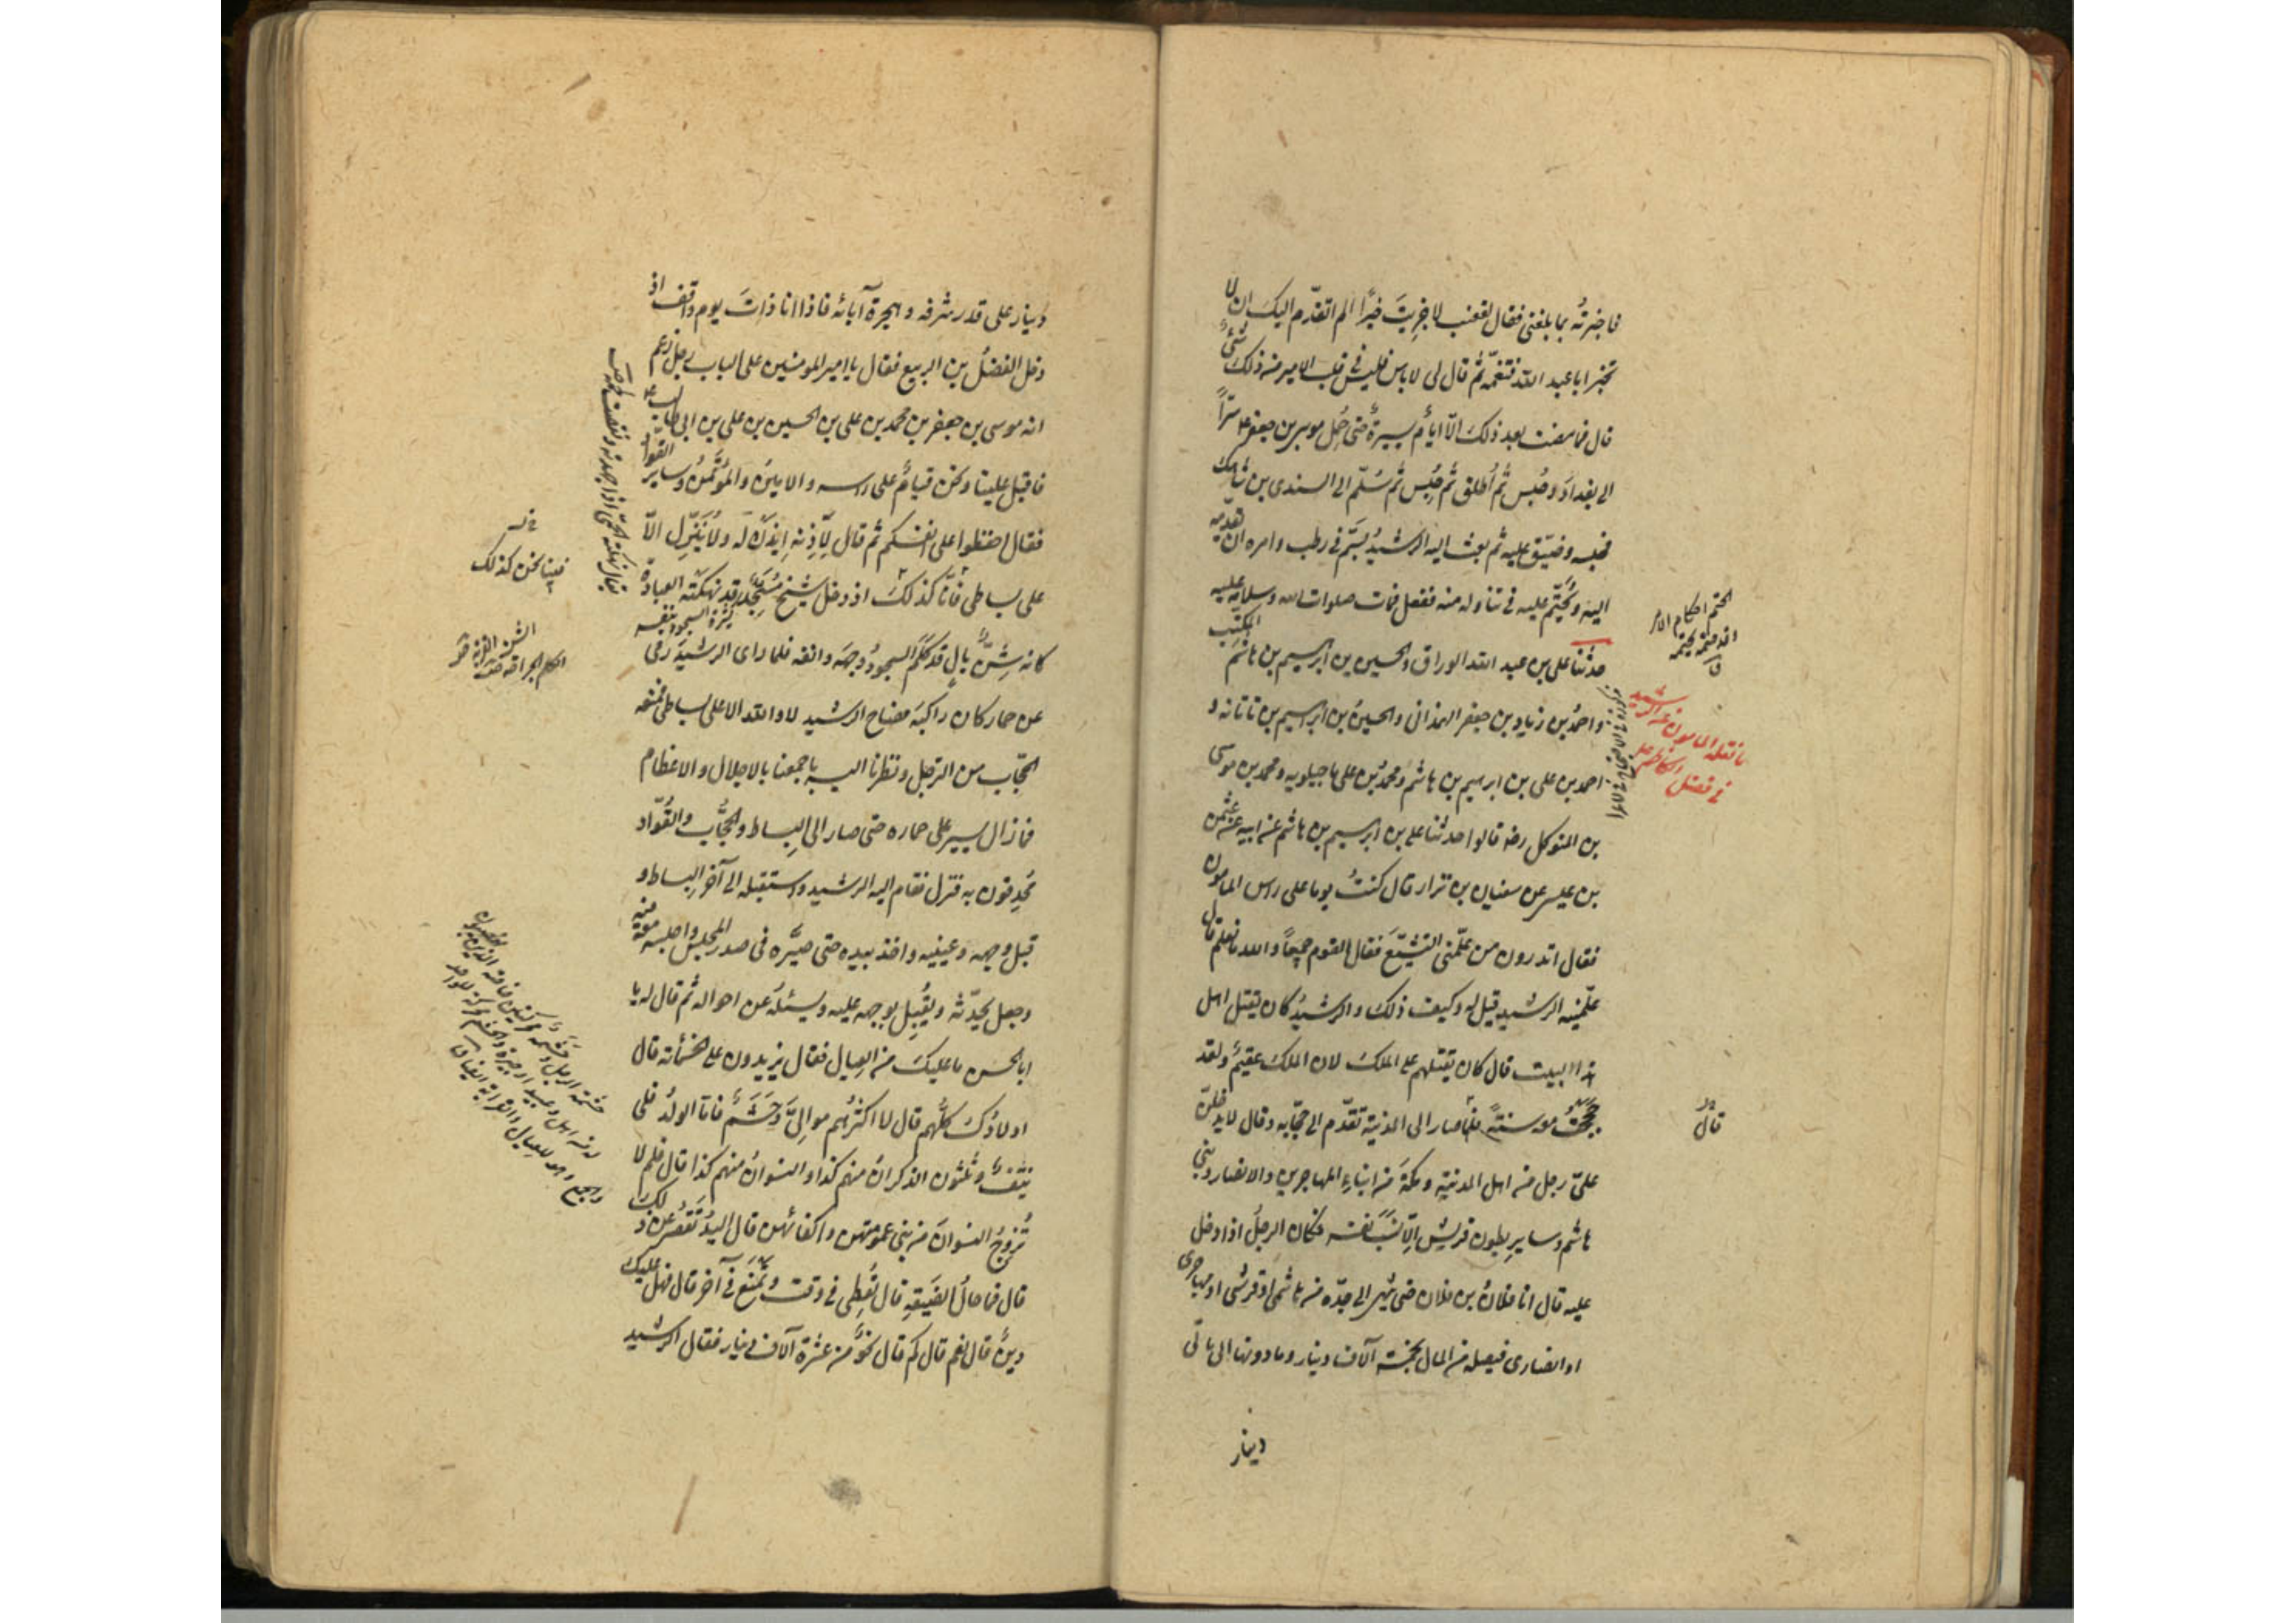 فاخبرته بما بلغنی فقال لقعنب لا جزیت خیرا الم اتقدّم الیک ان لا
تخبر ابا عبد الله فتغمّه ثم قال لی لا باس فلیس فی قلب الامیر من ذلک شیء
قال فما مضت بعد ذلک الّا ایّام یسیرة حتی حُمِل موسی بن جعفر ع سرّاً
الی بغداد و حُبس ثم اُطلق ثم حُبس ثم سُلّم الی السندی بن شاهک
فحبسه و ضیّق علیه ثم بعث الیه الرشید بسَمّ فی رطب و امره ان یقدّمه
الیه و یُحتّم علیه فی تناوله منه ففعل فمات صلوات الله و سلامه علیه
حدثنا علی بن عبد الله الوراق و الحسین بن ابرهیم بن هاشم المکتب
و احمد بن زیاد بن جعفر الهمذانی و الحسین بن ابرهیم بن تاتانه و
احمد بن علی بن ابرهیم بن هاشم و محمد بن علی ماجیلویه و محمد بن موسی
بن المتوکل رضه قالوا حدثنا علی بن ابرهیم بن هاشم عن ابیه عن عثمن
بن عیسی عن سفیان بن نزار قال کنتُ یوما علی راس المامون
فقال اتدرون من علّمنی التشیّع فقال القوم جمیعاً و الله ما نعلم قال
علّمنیه الرشید قیل له و کیف ذلک و الرشید کان یقتل اهل
هذا البیت قال کان یقتلهم علی الملک لان الملک عقیم و لقد
حججت معه سنة فلما صار الی المدینة تقدّم الی حجّابه و قال لا یدخلنّ
علیّ رجل من اهل المدینة و مکة من ابناء المهاجرین و الانصار و بنی
هاشم و سایر بطون قریش الّا نسب نفسه فکان الرجل اذا دخل
علیه قال انا فلان بن فلان حتی ینتهی الی جدّه من هاشمی او قرشی او مهاجری
او انصاری فیصله من المال بخمسة آلاف دینار و ما دونها الی مائتی
دینار
ما نقله المامون عن الرشید
فی فضل الکاظم ع
قال
دینار علی قدر شرفه و هجرة آبائه فاذا انا ذات یوم واقف اذ
دخل الفضل بن الربیع فقال یا امیر المومنین علی الباب رجل زعم
انه موسی بن جعفر بن محمد بن علی بن الحسین بن علی بن ابی طالب ع
فاقبل علینا و نحن قیام علی راسه و الامین و المؤتمن و سایر القوّاد
فقال احفظوا علی انفسکم ثم قال لآذنه ایذن له و لا ینزل الّا
علی بساطی فانّا کذلک اذ دخل شیخ مسخّد قد نهکته العبادة
کانه شنّ بال قد کلم السجود وجهه و انفه فلما رای الرشید رمی بنفسه
عن حمار کان راکبه فصاح الرشید لا و الله الا علی بساطی فمنعه
الحجّاب من الترجل و نظرنا الیه باجمعنا بالاجلال و الاعظام
فما زال یسیر علی حماره حتی صار الی البساط و الحجّاب و القوّاد
مُحدِقون به فنزل فقام الیه الرشید و استقبله الی آخر البساط و
قبل وجهه و عینیه و اخذ بیده حتی صیّره فی صدر المجلس و اجلسه معه فیه
و جعل یحدّثه و یُقبِل بوجهه علیه و یسئله عن احواله ثم قال له یا
ابا الحسن ما علیک من العیال فقال یزیدون علی خمسمائة قال
اولادُک کلّهم قال لا اکثرهم موالیّ و حشم فاما الولد فلی
نیّف و ثلثون الذکران منهم کذا و النسوان منهم کذا قال فلم لا
تُزوِّج النسوان من بنی عمومتهن و اکفائهن قال الید تقصر عن ذلک
قال فما حال الضیعة قال تُعطی فی وقت و تمنع فی آخر قال فهل علیک
دین قال نعم قال کم قال نحو من عشرة آلاف دینار فقال الرشید
فبینا نحن کذلک